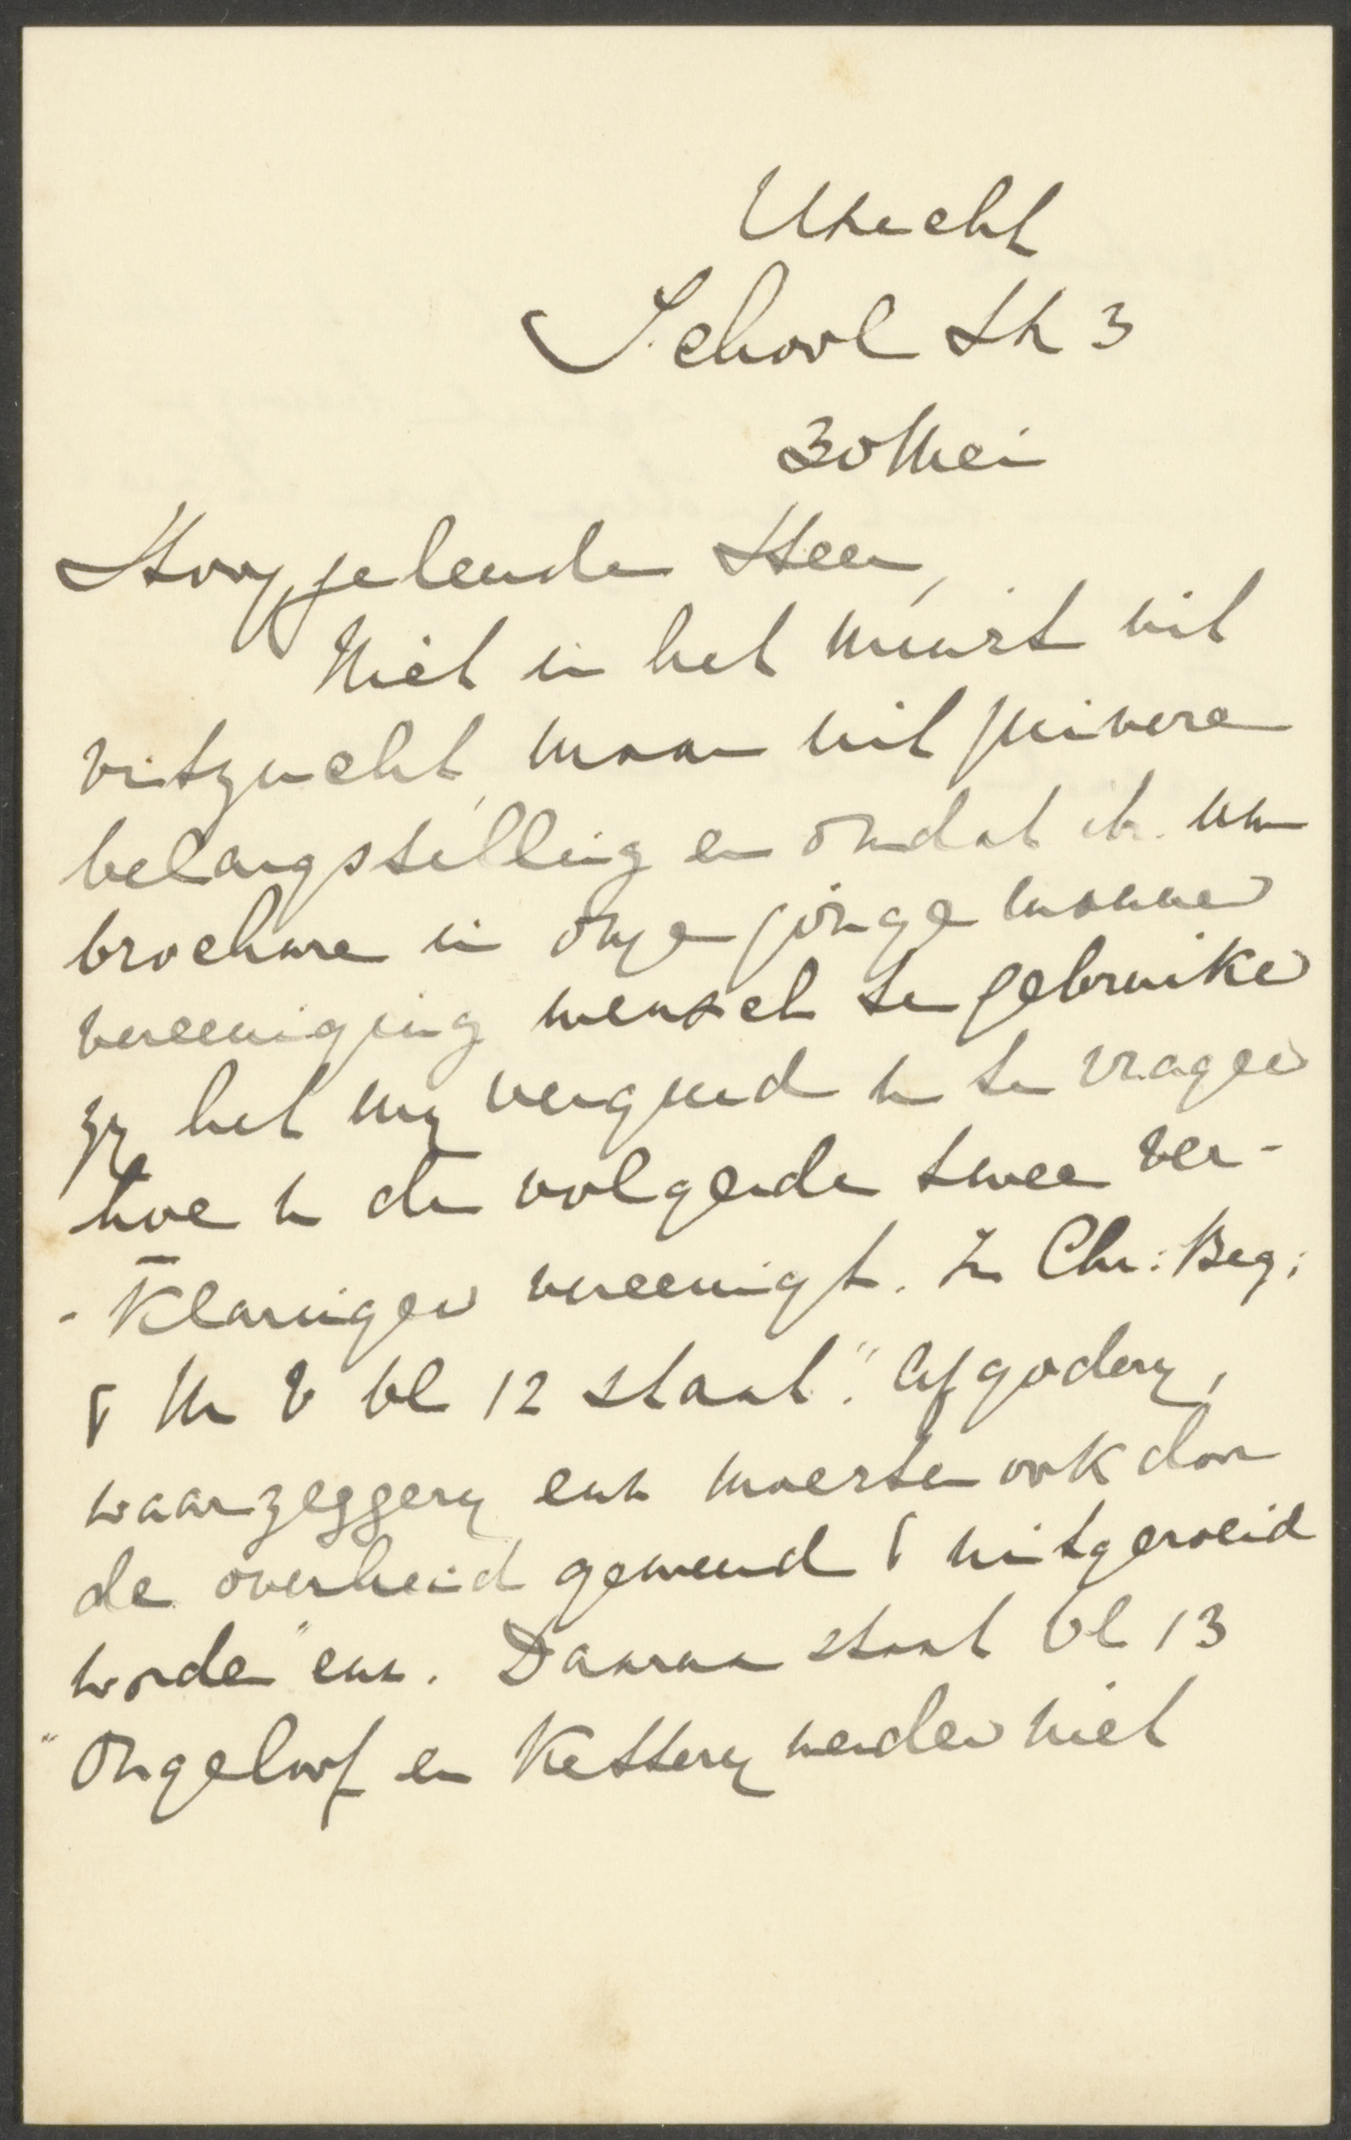 Utrecht
School str 3
30 Mei
Hooggeleerde Heer,
Niet in het minst uit
vitzucht, maar uit zuivere
belangstelling en omdat ik uw
brochure in onze jonge mannen
vereeniging wensch te gebruiken
zy het my vergund u te vragen
hoe u de volgende twee ver-
-klaringen vereenigt. In Chr: Beg:
& M V bl 12 staat: "Afgodery,
waarzeggery enz moesten ook door
de overheid geweerd & uitgeroeid
worden" enz. Daarna staat bl 13
"Ongeloof en Kettery werden niet